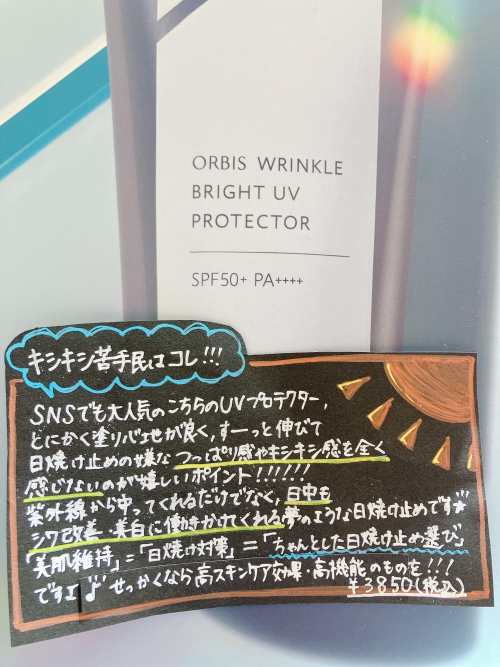 ORBIS WRINKLE
BRIGHT UV
PROTECTOR
SPF50+ PA++++
キシキシ苦手民はコレ!!!
SNSでも大人気のこちらのUVプロテクター,
とにかく塗り心地が良く,すーっと伸びて
日焼け止めの嫌なつっぱり感やキシキシ感を全く
感じないのが嬉しいポイント!!!!!!
紫外線から守ってくれるだけでなく,日中も
シワ改善・美白に働きかけてくれる夢のような日焼け止めです
「美肌維持」=「日焼け対策」=「ちゃんとした日焼け止め選び」
ですェ♪せっかくなら高スキンケア効果・高機能のものを!!!
¥3850(税込)